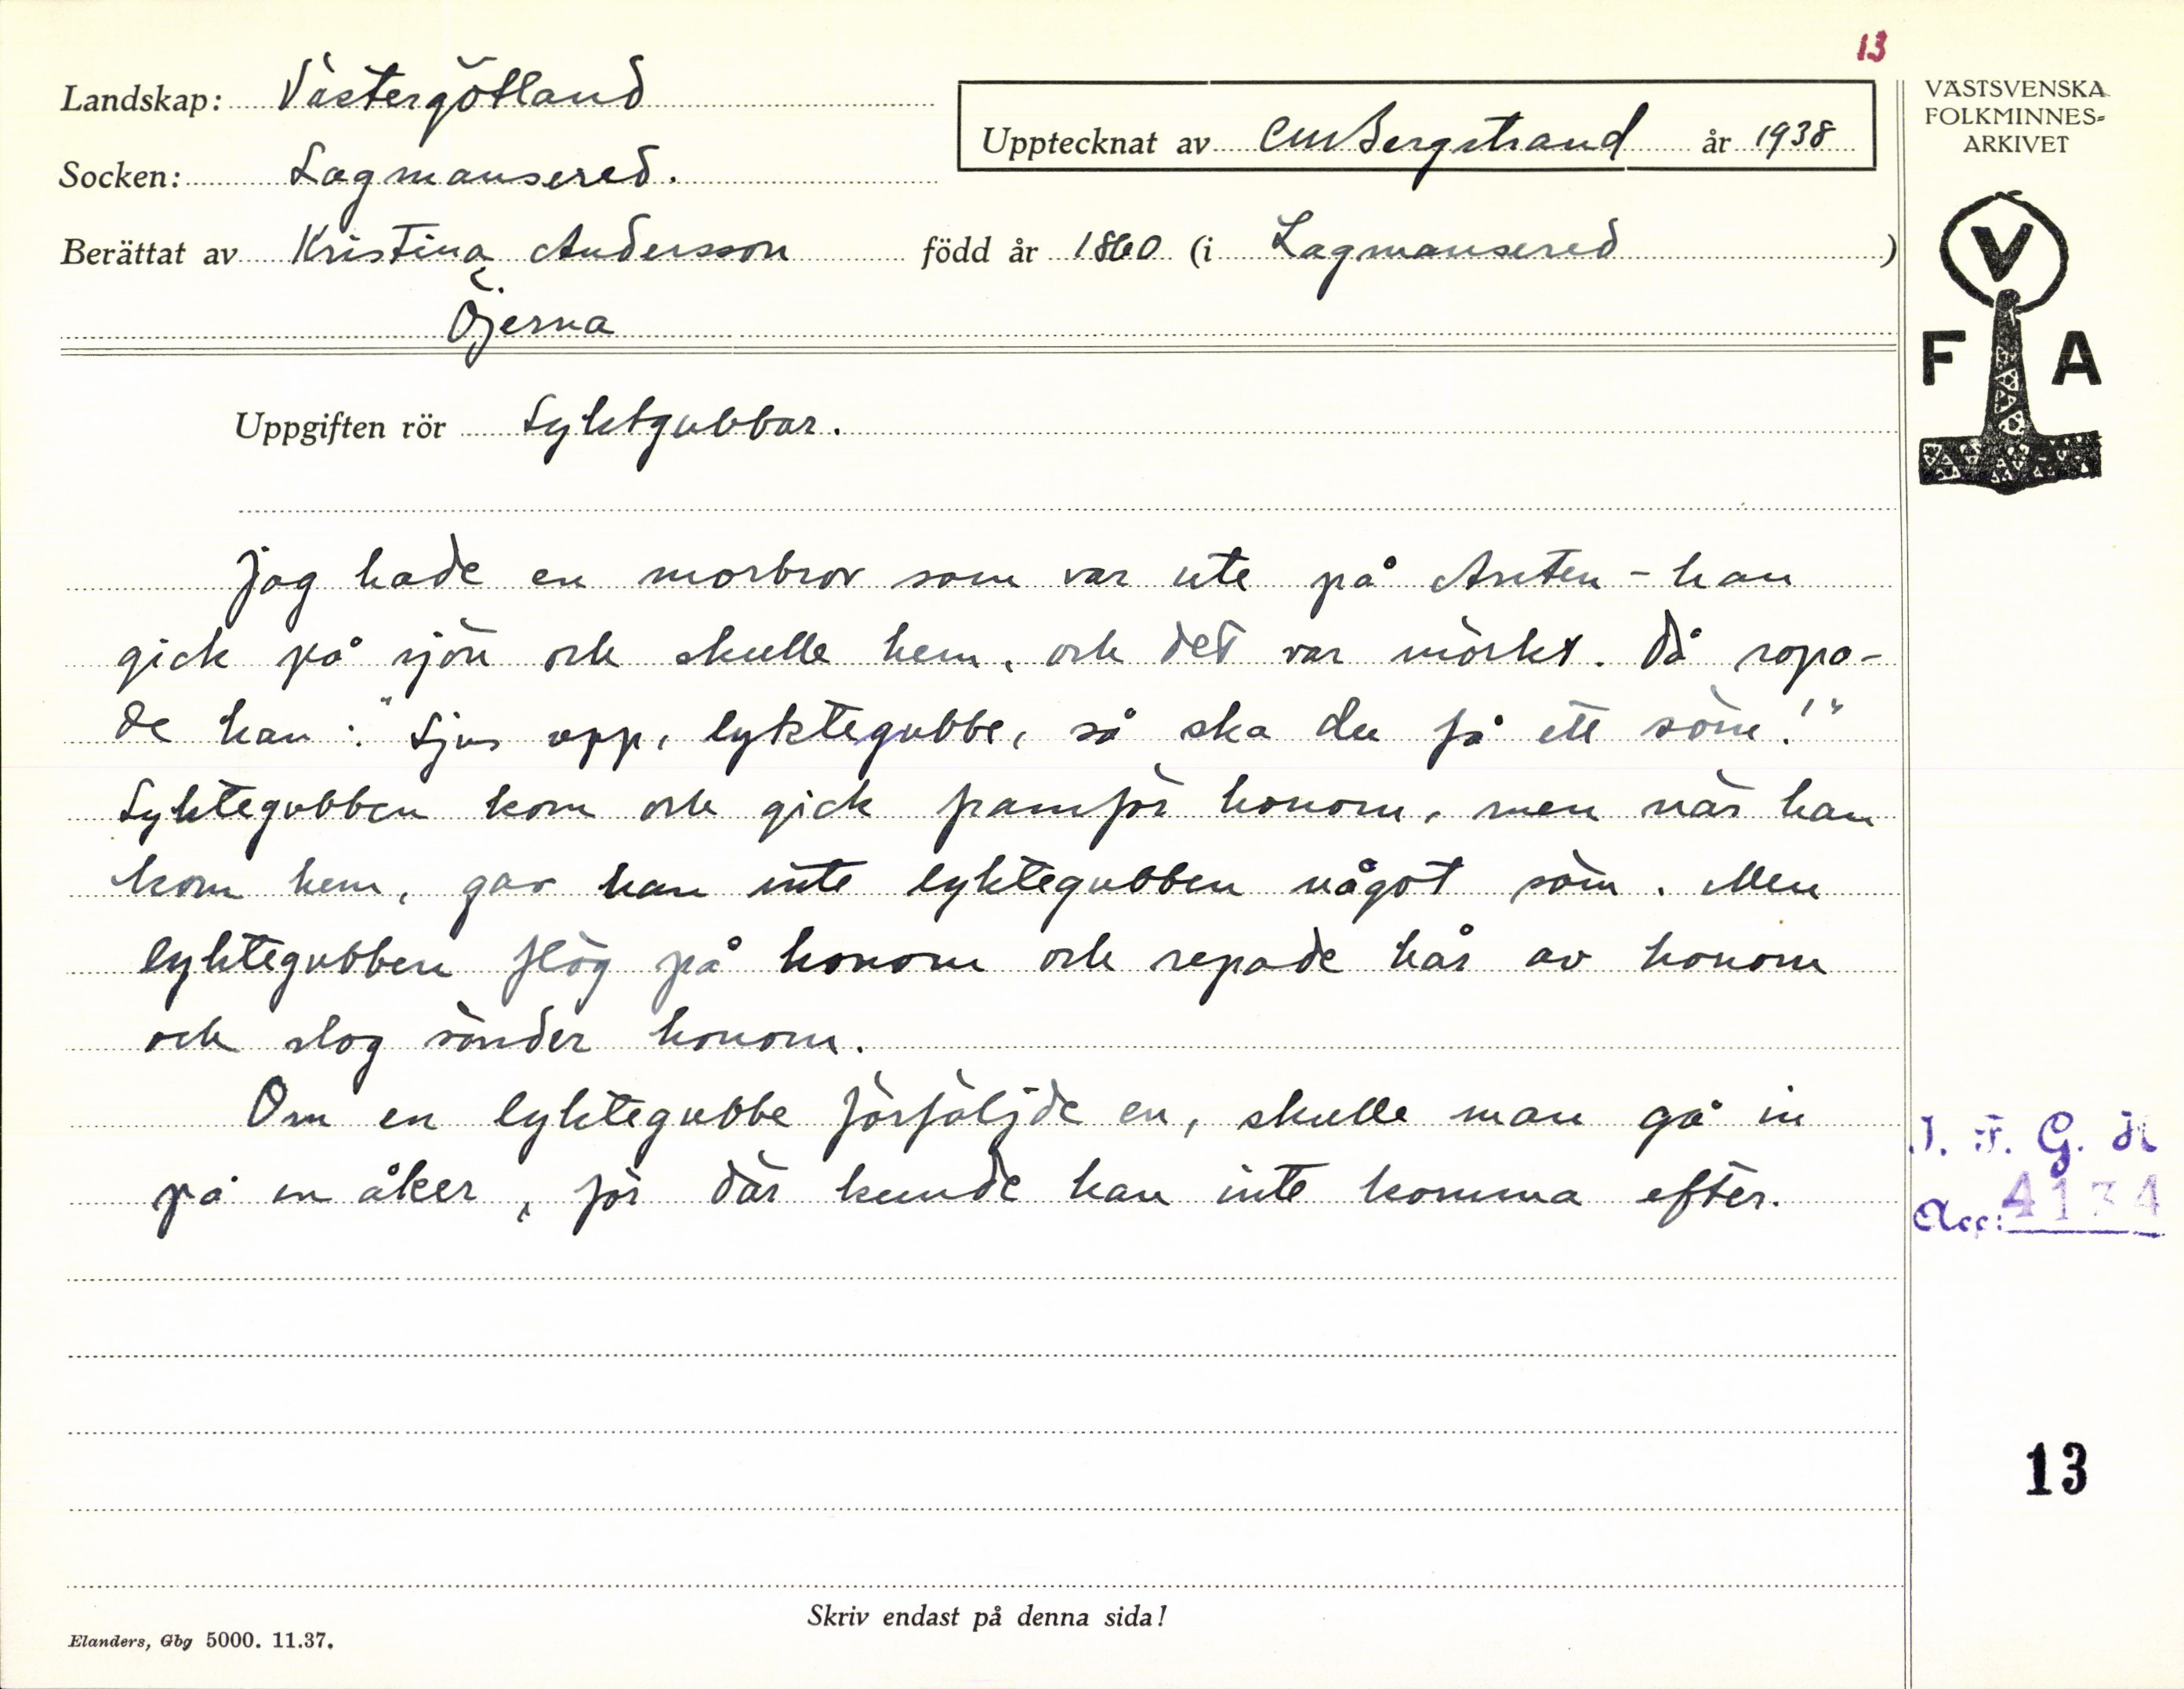 13
Landskap: Västergötland
Upptecknat av CM Bergstrand år 1938
Socken: Lagmansered.
Berättat av Kristina Andersson född år 1860 (i Lagmansered)
Öjerna
VÄSTSVENSKA
FOLKMINNES-
ARKIVET
V
F A
Uppgiften rör Lyktgubbar.
Jag hade en morbror som var ute på Anten - han
gick på sjön och skulle hem, och det var mörkt. Då ropa-
de han: "Ljus opp, lyktegubbe, så ska du få ett söm!"
Lyktegubben kom och gick framför honom, men när han
kom hem, gav han inte lyktegubben något söm. Men
lyktegubben flög på honom och repade hår av honom
och slog sönder honom.
Om en lyktegubbe förföljde en, skulle man gå in
på en åker, för där kunde han inte komma efter.
I. F. G. H
Acc: 4134
13
Skriv endast på denna sida!
Elanders, Gbg 5000. 11.37.